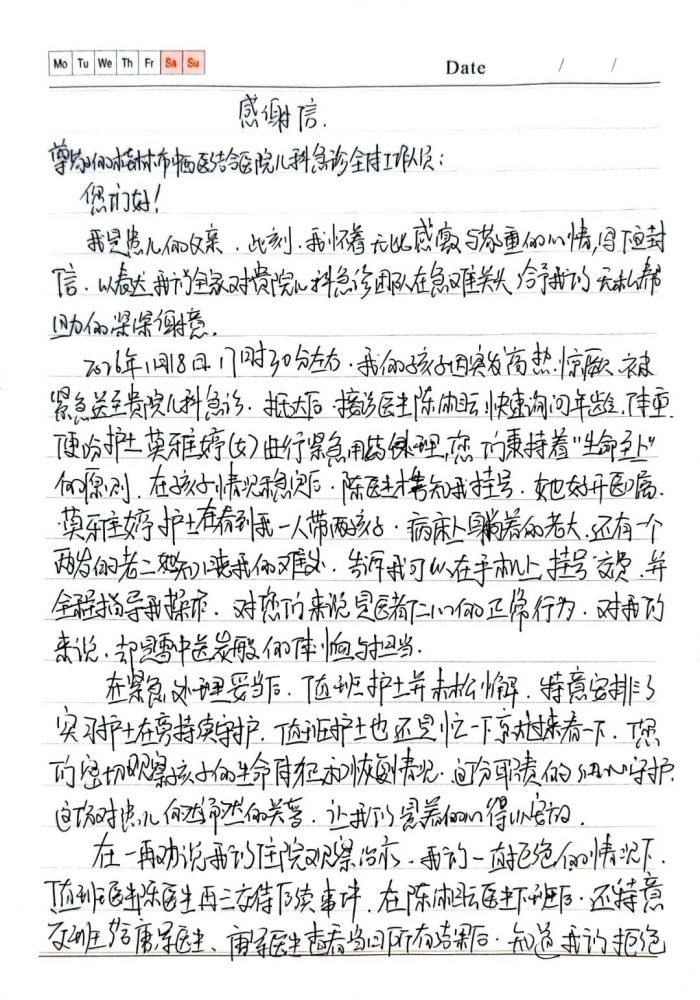 Mo Tu We Th Fr Sa Su
Date / /
感谢信.
尊敬的桂林市中西医结合医院儿科急诊全体工作人员:
您们好!
我是患儿的父亲.此刻.我怀着无比感激与敬重的心情,写下这封
信.以表达我们全家对贵院儿科急诊团队在急难关头给予我们无私帮
助的深深谢意.
2026年1月18日17时30分左右.我的孩子因突发高热.惊厥.被
紧急送至贵院儿科急诊.抵达后.接诊医生陈湘耘快速询问年龄.体重.
便吩护士莫雅婷(女)进行紧急用药处理,您们秉持着"生命至上"
的原则.在孩子情况稳定后.陈医生才告知我挂号.她好开医嘱.
莫雅婷护士在看到我一人带两孩子.病床上躺着的老大.还有一个
两岁的老二她知晓我的难处.告诉我可以在手机上挂号交费.并
全程指导我操作.对您们来说是医者仁心的正常行为.对我们
来说.却是雪中送炭般的体恤与担当.
在紧急处理妥当后.值班护士并未松懈.特意安排了
实习护士在旁持续守护.值班护士也还是忙一下就过来看一下.您
们密切观察孩子的生命体征和恢复情况.这份职责的细心守护.
这场对患儿的关爱.让我们悬着的心得以安放.
在一再劝说我们住院观察治疗.我们一直拒绝的情况下.
值班医生陈医生再三交待后续事项.在陈湘耘医生下班后.还特意
交班给唐军医生.唐军医生查看当日所有结果后.知道我们拒绝